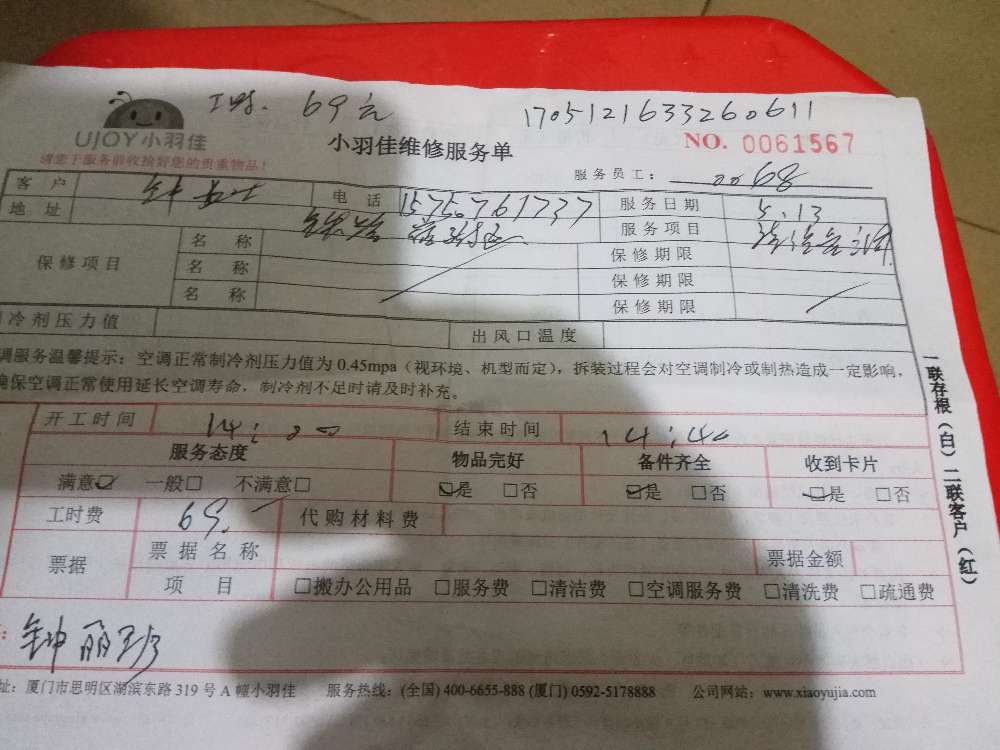 工时. 69元 1705121633260611
UJOY小羽佳 小羽佳维修服务单 NO. 0061567
请您于服务前收捡好您的贵重物品! 服务员工: 0068
客户 钟女士 电话 15750761737 服务日期 5.13
地址 服务项目
保修项目 名称 保修期限
名称 保修期限
名称 保修期限
冷剂压力值 出风口温度
调服务温馨提示: 空调正常制冷剂压力值为 0.45mpa (视环境、机型而定), 拆装过程会对空调制冷或制热造成一定影响,
确保空调正常使用延长空调寿命, 制冷剂不足时请及时补充。
开工时间 14:00 结束时间 14:40
服务态度 物品完好 备件齐全 收到卡片
满意☑ 一般□ 不满意□ ☑是 □否 ☑是 □否 ☑是 □否
工时费 69. 代购材料费
票据 票据名称 票据金额
项目 □搬办公用品 □服务费 □清洁费 □空调服务费 □清洗费 □疏通费
钟丽珍
址: 厦门市思明区湖滨东路 319 号 A 幢小羽佳 服务热线: (全国) 400-6655-888 (厦门) 0592-5178888 公司网站: www.xiaoyujia.com
一联存根(白)二联客户(红)